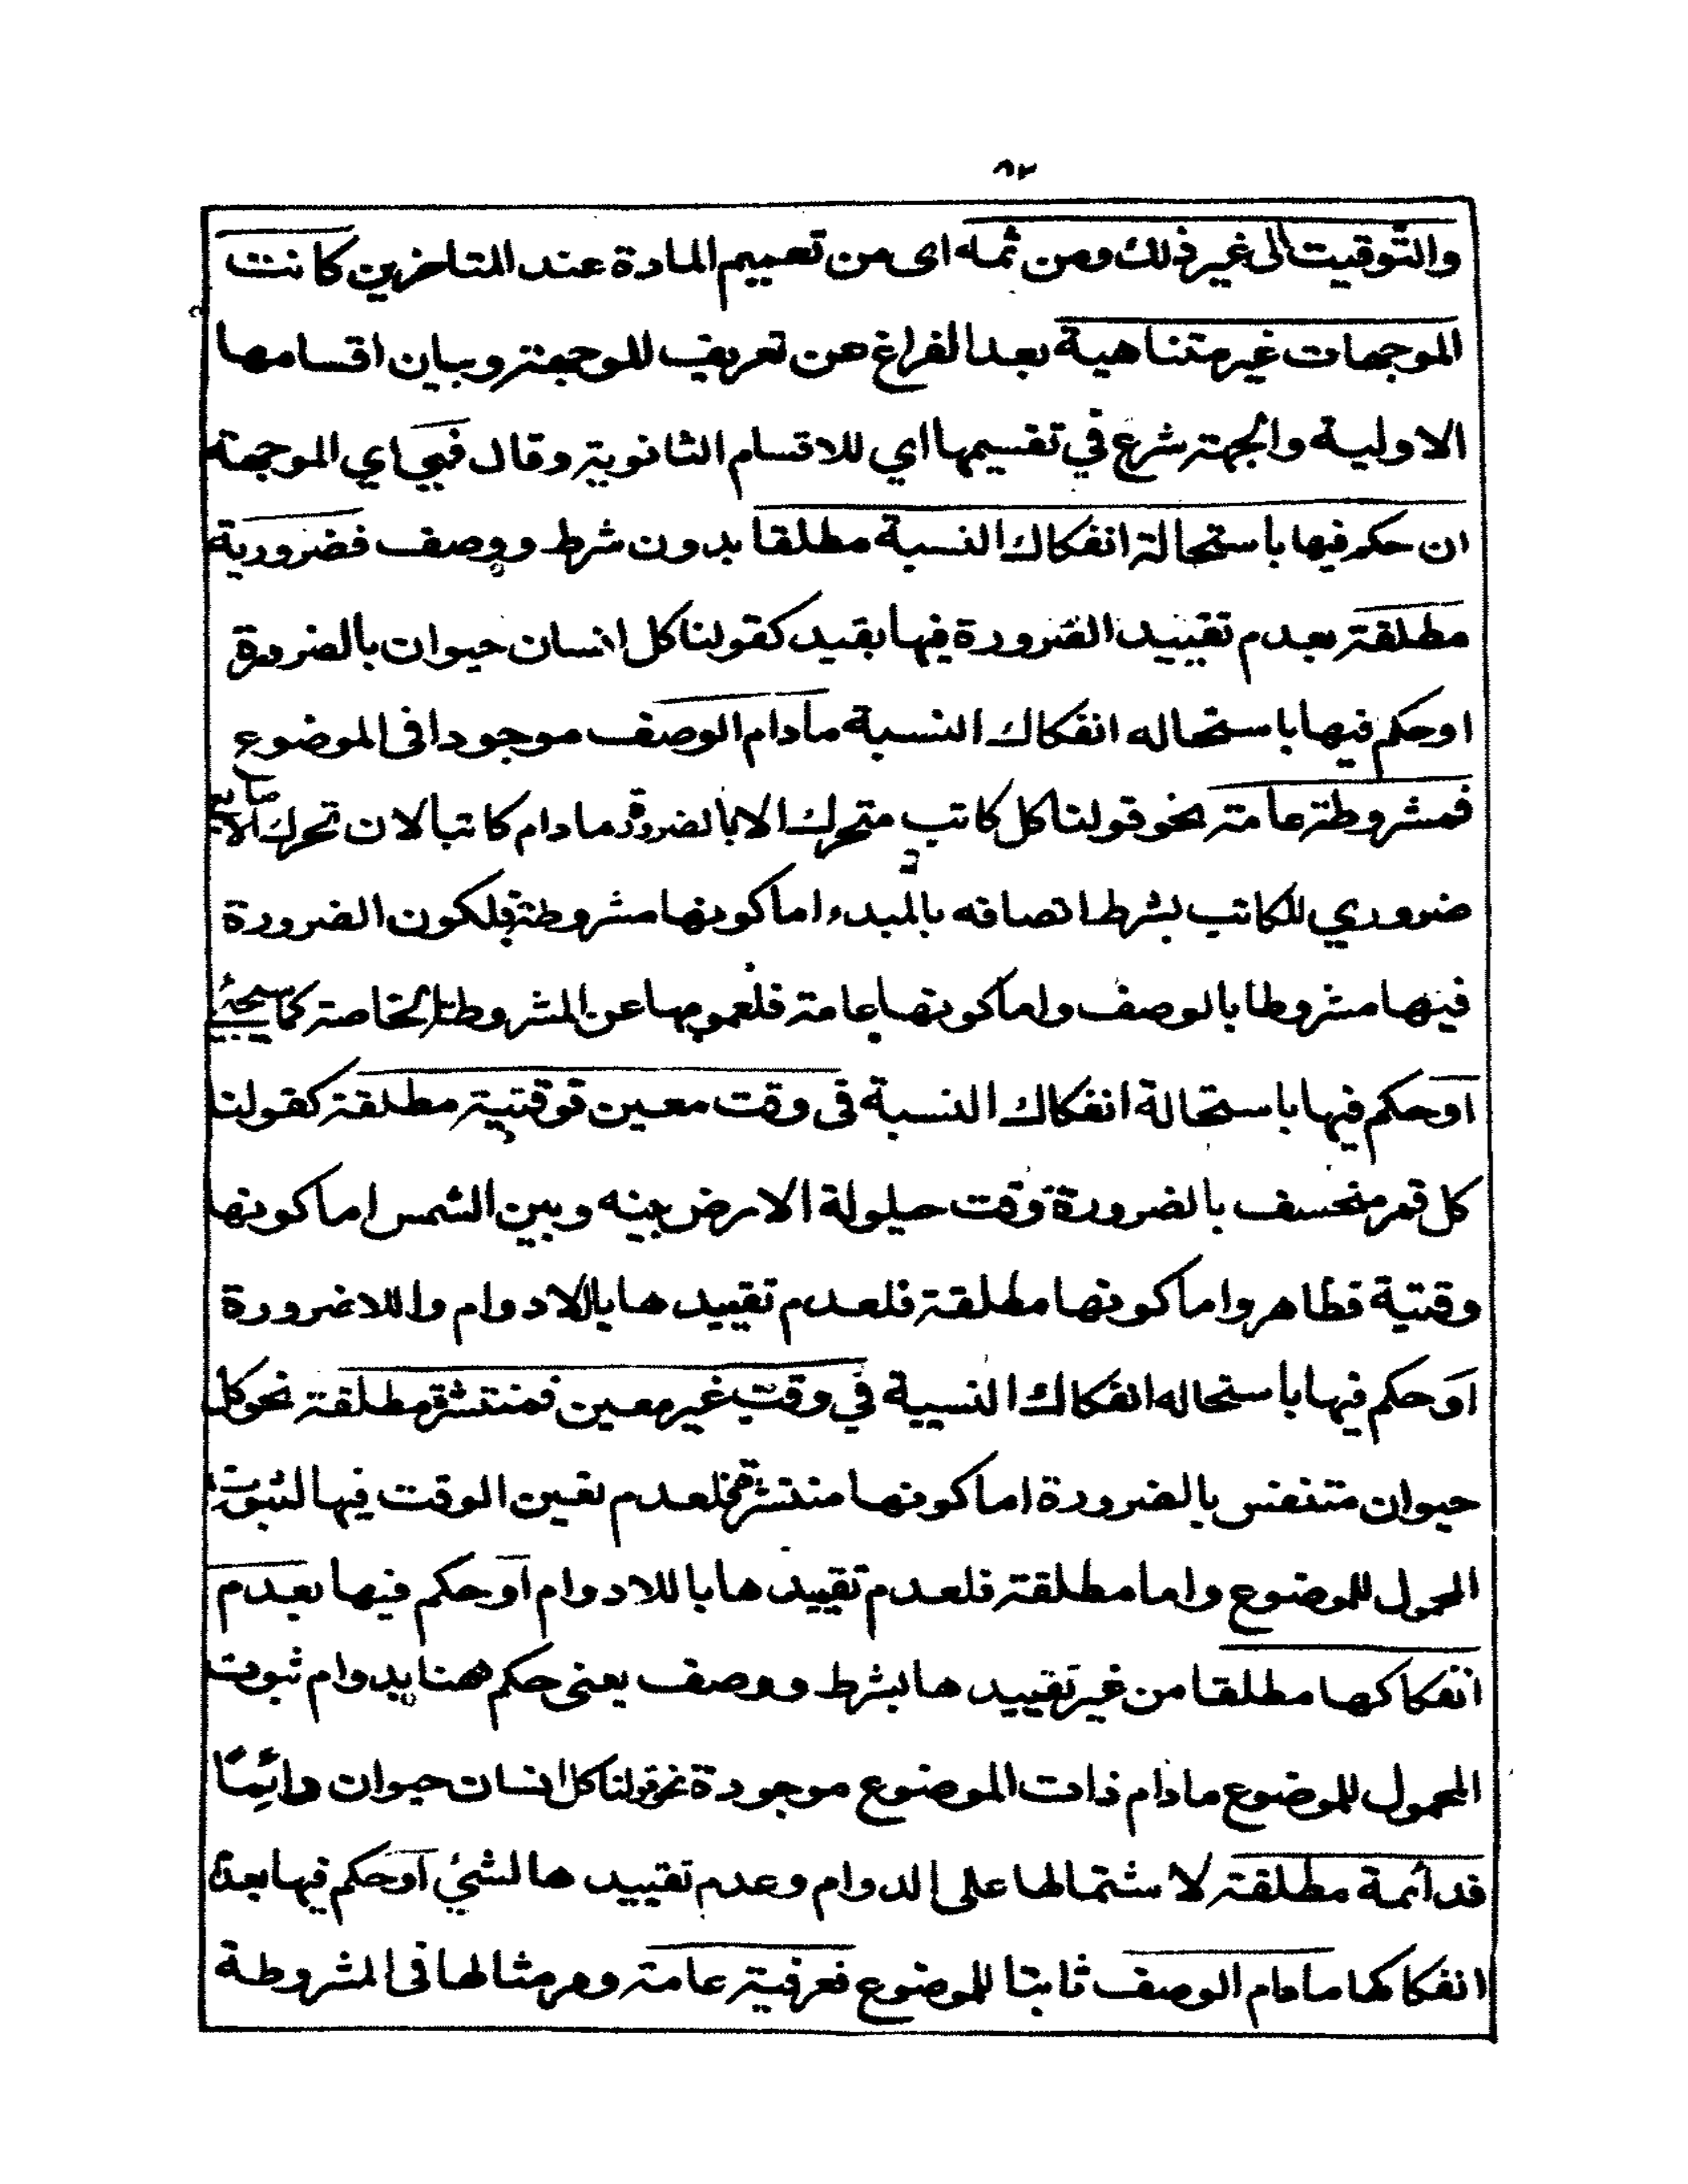 ٨٢
والتوقيت الى غير ذلك ومن ثمه اى من تعميم المادة عند المتاخرين كانت
الموجهات غير متناهية بعد الفراغ عن تعريف للوجهة وبيان اقسامها
الاولية والجهة شرع في تقسيمها اي للاقسام الثانوية وقال فهي اي الموجهة
ان حكم فيها باستحالة انفكاك النسبة مطلقا بدون شرط ووصف فضرورية
مطلقة بعدم تقييد الضرورة فيها بقيد كقولنا كل انسان حيوان بالضرورة
اوحكم فيها باستحاله انفكاك النسبة مادام الوصف موجودا فى الموضوع
فمشروطة عامة نحو قولنا كل كاتب متحرك الاصابع بالضرورة مادام كاتبا لان تحرك الاصابع
ضروري للكاتب بشرط اتصافه بالمبدء اما كونها مشروطة فلكون الضرورة
فيها مشروطا بالوصف واما كونها عامة فلعمومها عن المشروطة الخاصة كما سيجئ
اوحكم فيها باستحالة انفكاك النسبة فى وقت معين فوقتية مطلقة كقولنا
كل قمر منخسف بالضرورة وقت حيلولة الارض بينه وبين الشمس اما كونها
وقتية فظاهر واما كونها مطلقة فلعدم تقييدها بالادوام واللاضرورة
اوحكم فيها باستحاله انفكاك النسبية في وقت غير معين فمنتشرة مطلقة نحو كل
حيوان متنفس بالضرورة اما كونها منتشرة فلعدم تعين الوقت فيها لثبوت
المحمول للموضوع واما مطلقة فلعدم تقييدها باللادوام اوحكم فيها بعدم
انفكاكها مطلقا من غير تقييدها بشرط ووصف يعنى حكم ههنا بدوام ثبوت
المحمول للموضوع مادام ذات الموضوع موجودة نحو قولنا كل انسان حيوان دائما
فدائمة مطلقة لاشتمالها على الدوام وعدم تقييدها لشئ اوحكم فيها بعدم
انفكاكها مادام الوصف ثابتا للموضوع فعرفية عامة ومر مثالها فى المشروطة